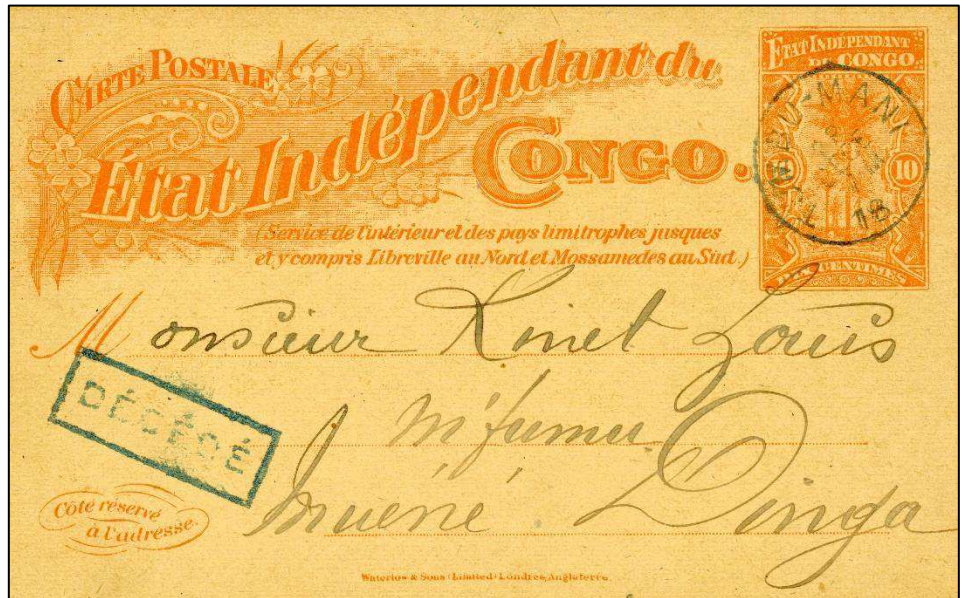 CARTE POSTALE
État Indépendant du
CONGO.
(Service de l'intérieur et des pays limitrophes jusques
et y compris Libreville au Nord et Mossamedes au Sud.)
ÉTAT INDÉPENDANT
DU CONGO.
10
DIX CENTIMES
Monsieur Kinet Louis
M'fumu
DÉCÉDÉ
Muéné Dinga
Côté réservé
à l'adresse.
Waterlow & Sons Limited Londres, Angleterre.